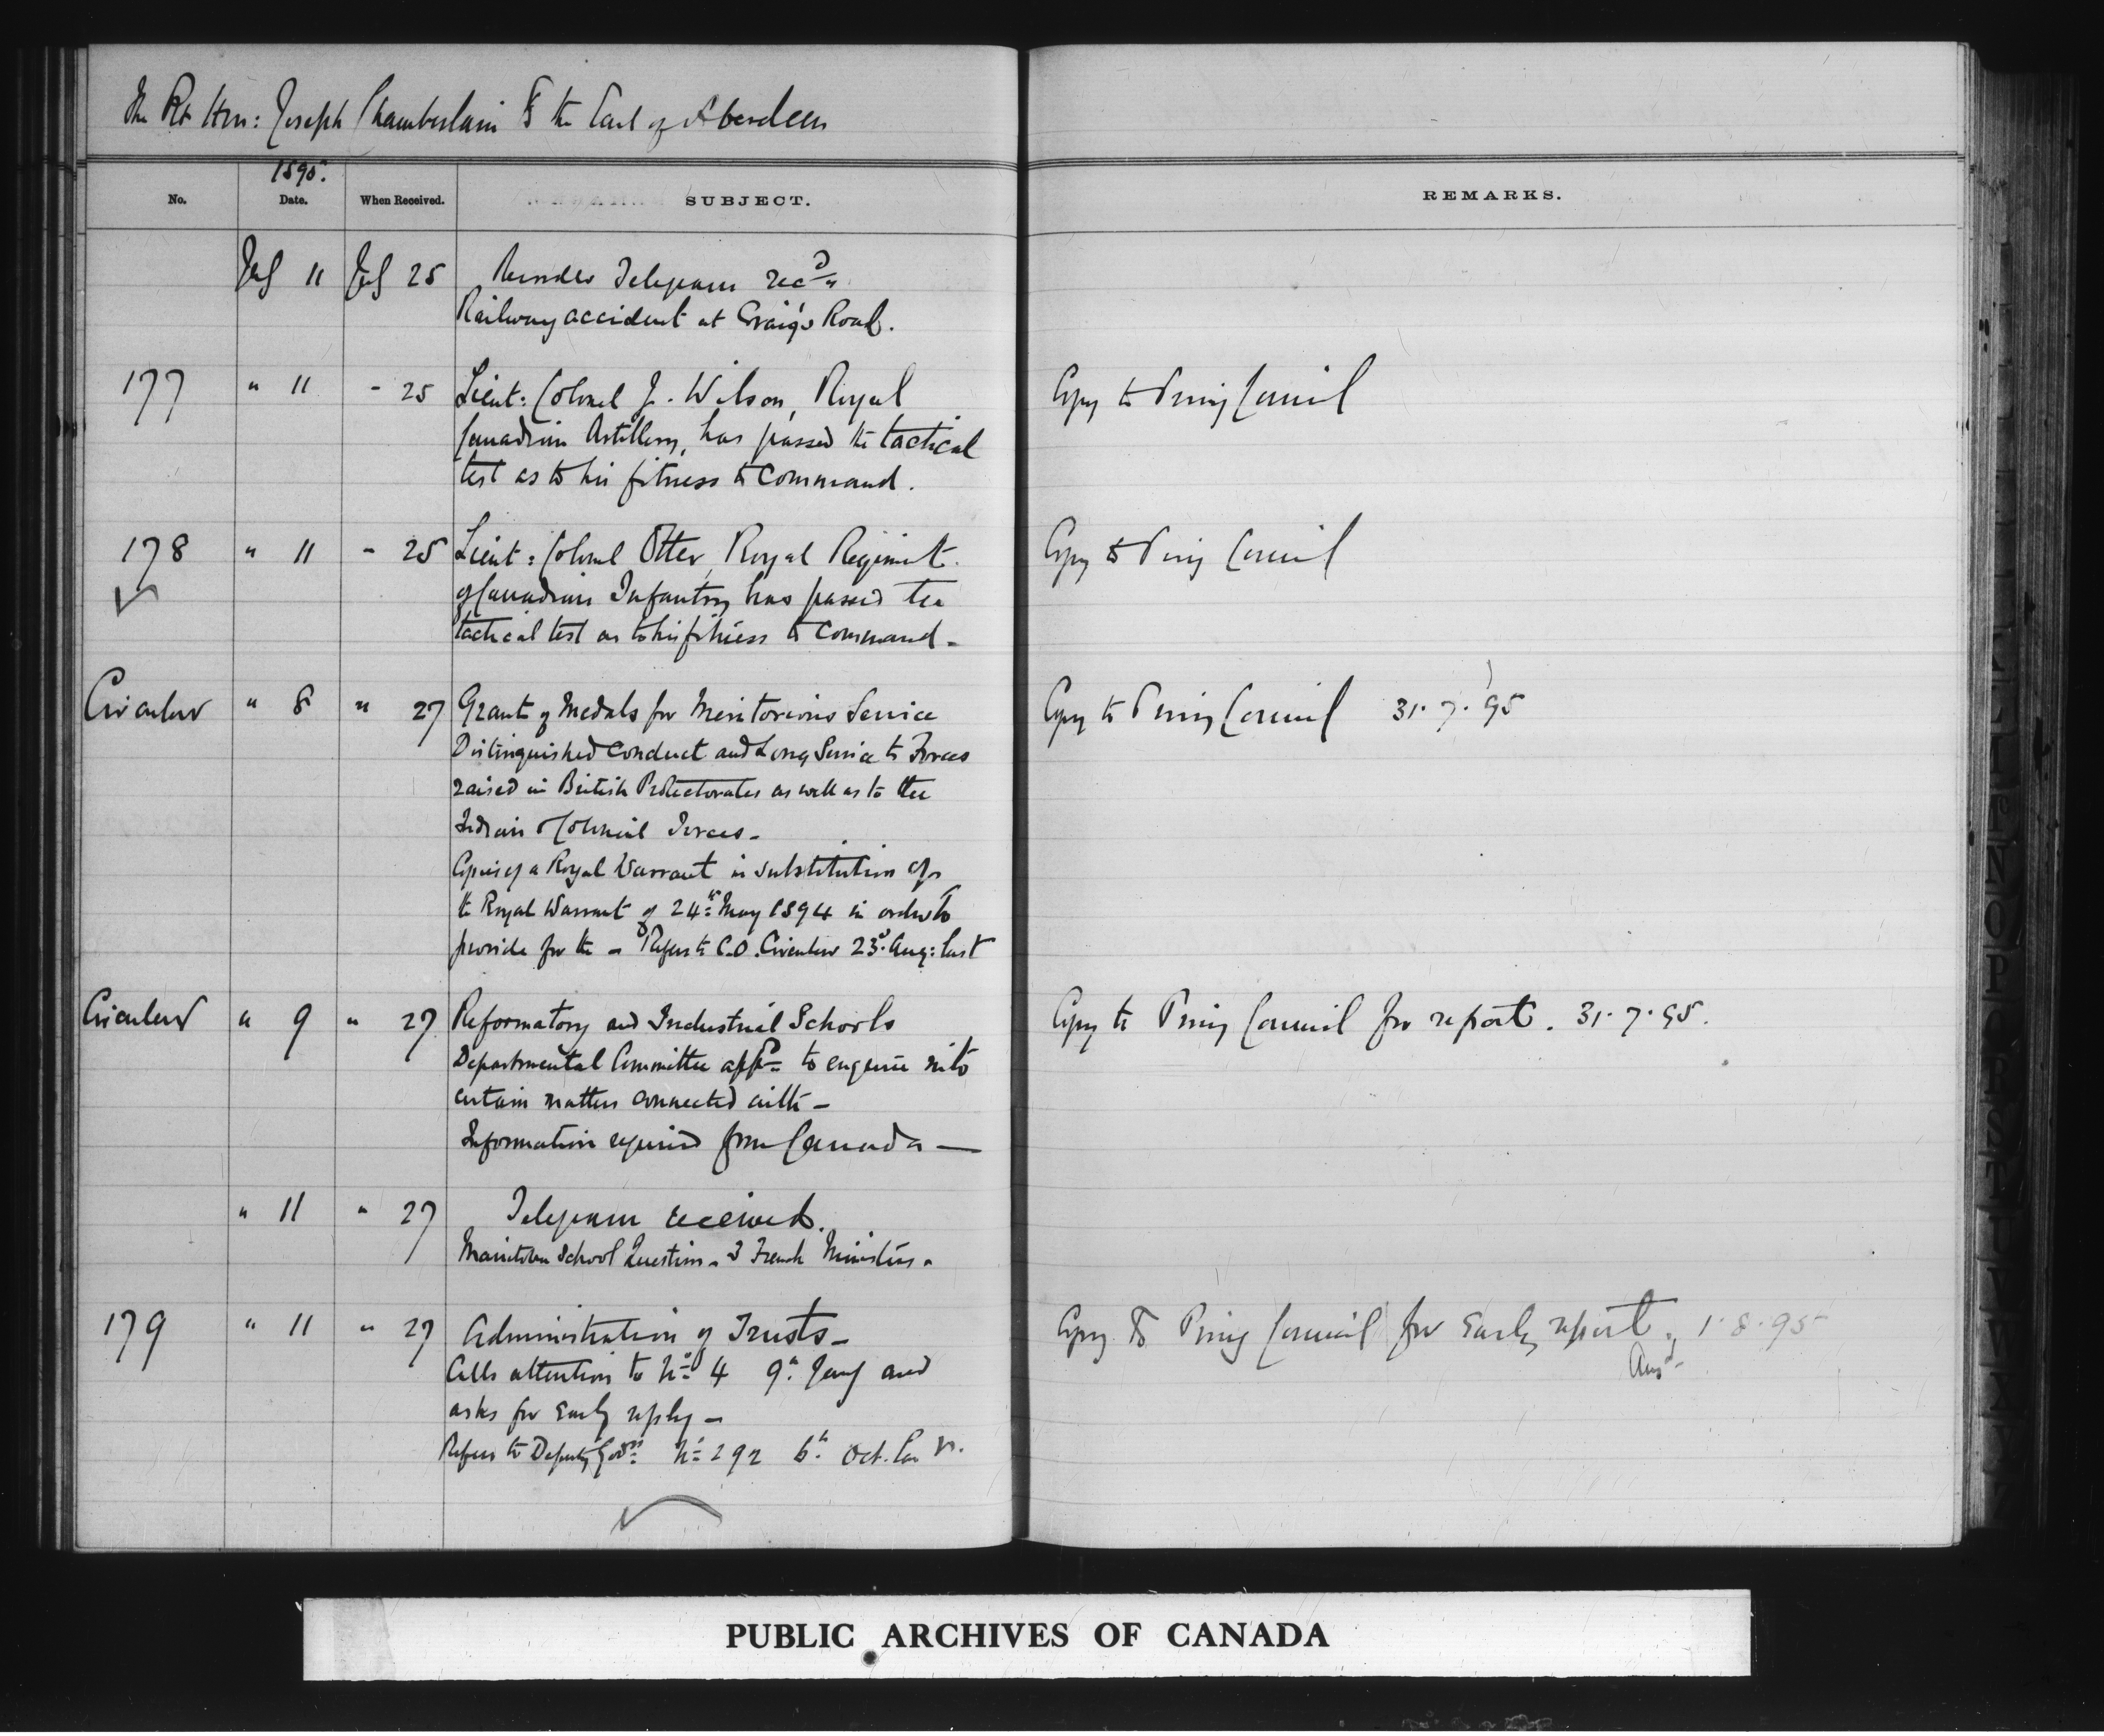 The Rt Hon: Joseph Chamberlain to the Earl of Aberdeen
1895.
No. Date. When Received. SUBJECT. REMARKS.
July 11 July 25 Telegram recd
Railway accident at Craig's Road.
177 " 11 " 25 Lieut: Colonel J. Wilson, Royal Copy to Privy Council
Canadian Artillery, has passed the tactical
test as to his fitness to command.
178 " 11 " 25 Lieut: Colonel Otter, Royal Regiment Copy to Privy Council
of Canadian Infantry has passed the
tactical test as to his fitness to command -
Circular " 8 " 27 Grant of Medals for Meritorious Service Copy to Privy Council 31.7.95
Distinguished Conduct and Long Service to Forces
raised in British Protectorates as well as to the
Indian & Colonial Forces -
Copies of a Royal Warrant in substitution of
the Royal Warrant of 24th May 1894 in order to
provide for the - Refers to C.O. Circular 23d Aug: last
Circular " 9 " 27 Reformatory and Industrial Schools Copy to Privy Council for report. 31.7.95.
Departmental Committee appd to enquire into
certain matters connected with -
Information required from Canada —
" 11 " 27 Telegram received.
Manitoba School Question - 3 French Ministers -
179 " 11 " 27 Administration of Trusts - Copy to Privy Council for early report. 1.8.95
Ansd
Calls attention to No 4 9th Jany and
asks for early reply -
Refers to Deputy Govrs No 292 6th Oct.
PUBLIC ARCHIVES OF CANADA